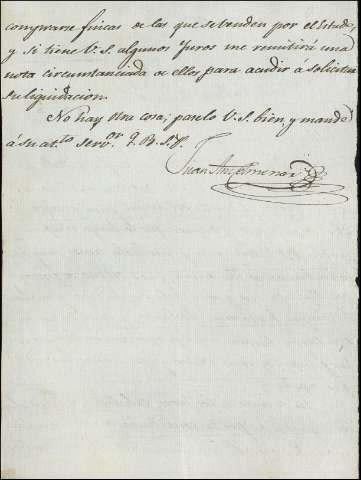 comprarse fincas de las que se benden por el Estado,
y si tiene V. S. algunos Juros me remitirá una
nota circunstanciada de ellos para acudir á solicitar
su liquidacion.
No hay otra cosa; paselo V. S. bien, y mande
á su at.to serv.or Q. B. S. M.
Juan Ant.